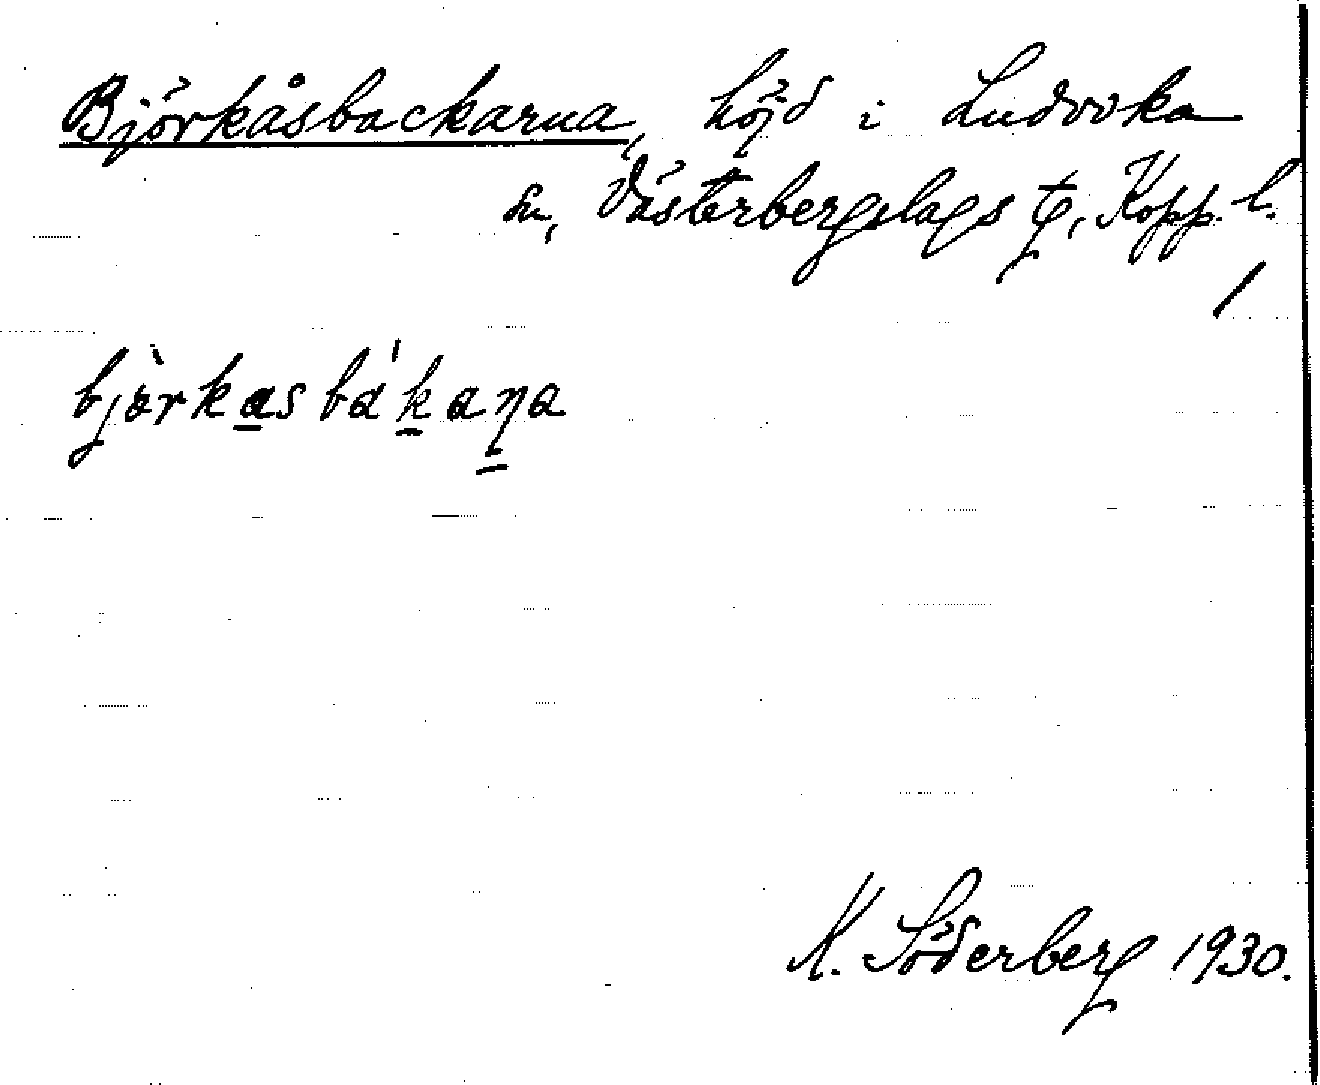 Björkåsbackarna, höjd i Ludvika
sn, Västerbergslags tg, Kopp. l.
/
bjòrkasbákaɳa
K. Söderberg 1930.